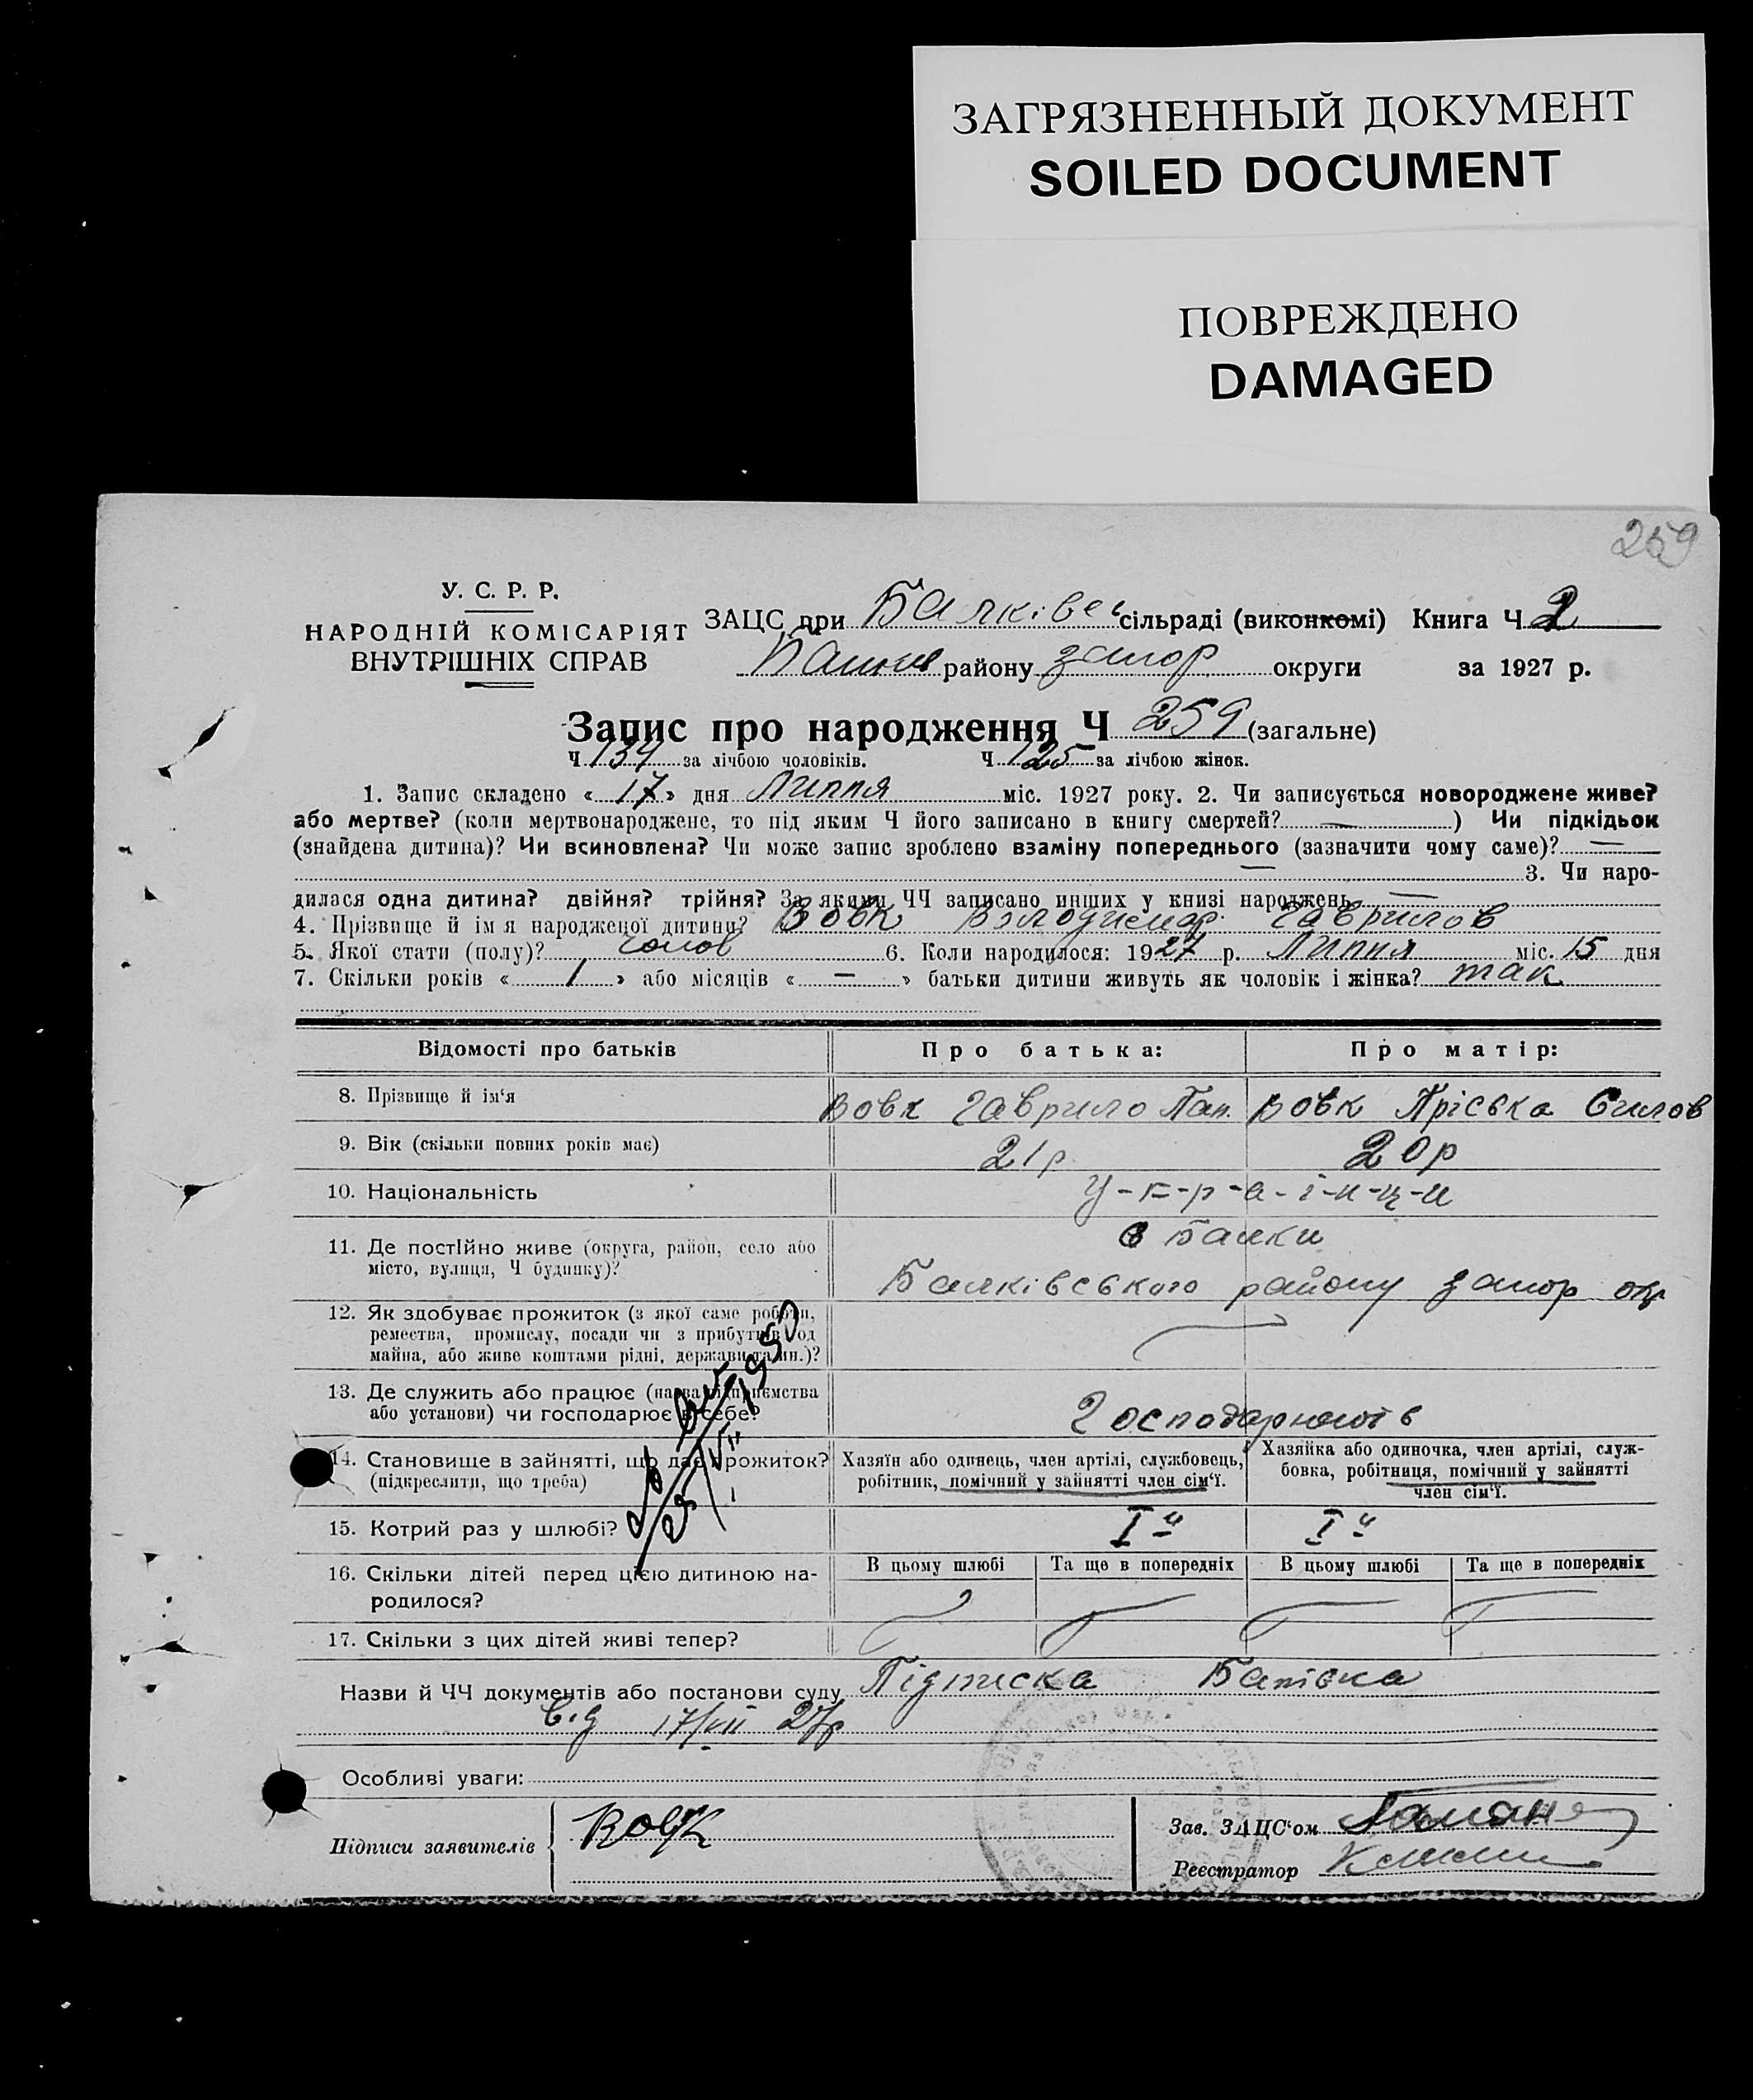 ЗАГРЯЗНЕННЫЙ ДОКУМЕНТ
SOILED DOCUMENT
ПОВРЕЖДЕНО
DAMAGED
259
У. С. Р. Р.
НАРОДНІЙ КОМІСАРІЯТ
ВНУТРІШНІХ СПРАВ
ЗАЦС при Балківс сільраді (виконкомі) Книга Ч 2
району запор округи за 1927 р.
Запис про народження Ч 259 (загальне)
Ч 134 за лічбою чоловіків. Ч 125 за лічбою жінок.
1. Запис складено « 17 » дня Липня міс. 1927 року. 2. Чи записується новороджене живе?
або мертве? (коли мертвонароджене, то під яким Ч його записано в книгу смертей? — ) Чи підкідьок
(знайдена дитина)? Чи всиновлена? Чи може запис зроблено взаміну попереднього (зазначити чому саме)? —
— 3. Чи наро-
дилася одна дитина? двійня? трійня? За якими ЧЧ записано инших у книзі народжень —
4. Прізвище й ім я народженої дитини? Вовк Володимир Гаврилов
5. Якої стати (полу)? чолов 6. Коли народилося: 1927 р. Липня міс. 15 дня
7. Скільки років « 1 » або місяців « — » батьки дитини живуть як чоловік і жінка? так
Відомості про батьків Про батька: Про матір:
8. Прізвище й ім'я Вовк Гаврило Пан. Вовк Пріська Силов
9. Вік (скільки повних років має) 21 р 20 р
10. Національність У-к-р-а-ї-н-ц-и
11. Де постійно живе (округа, район, село або с Балки
місто, вулиця, Ч будинку)? Балківського району запор окр
12. Як здобуває прожиток (з якої саме роботи,
ремества, промислу, посади чи з прибутків од
майна, або живе коштами рідні, держави та ин.)?
13. Де служить або працює (назва підприємства
або установи) чи господарює в себе? Господарюють
14. Становище в зайнятті, що дає прожиток? Хазяїн або одинець, член артілі, службовець, Хазяйка або одиночка, член артілі, служ-
(підкреслити, що треба) робітник, помічний у зайнятті член сім'ї. бовка, робітниця, помічний у зайнятті
член сім'ї.
15. Котрий раз у шлюбі? I й I й
16. Скільки дітей перед цією дитиною на- В цьому шлюбі Та ще в попередніх В цьому шлюбі Та ще в попередніх
родилося?
17. Скільки з цих дітей живі тепер?
Назви й ЧЧ документів або постанови суду Підписка Батька
Від 17/VII 27р
Особливі уваги:
Підписи заявителів Вовк
Зав. ЗАЦС'ом
Реєстратор